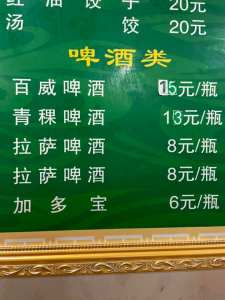 红油饺子 20元
汤饺 20元
啤酒类
百威啤酒 15元/瓶
青稞啤酒 13元/瓶
拉萨啤酒 8元/瓶
拉萨啤酒 8元/瓶
加多宝 6元/瓶